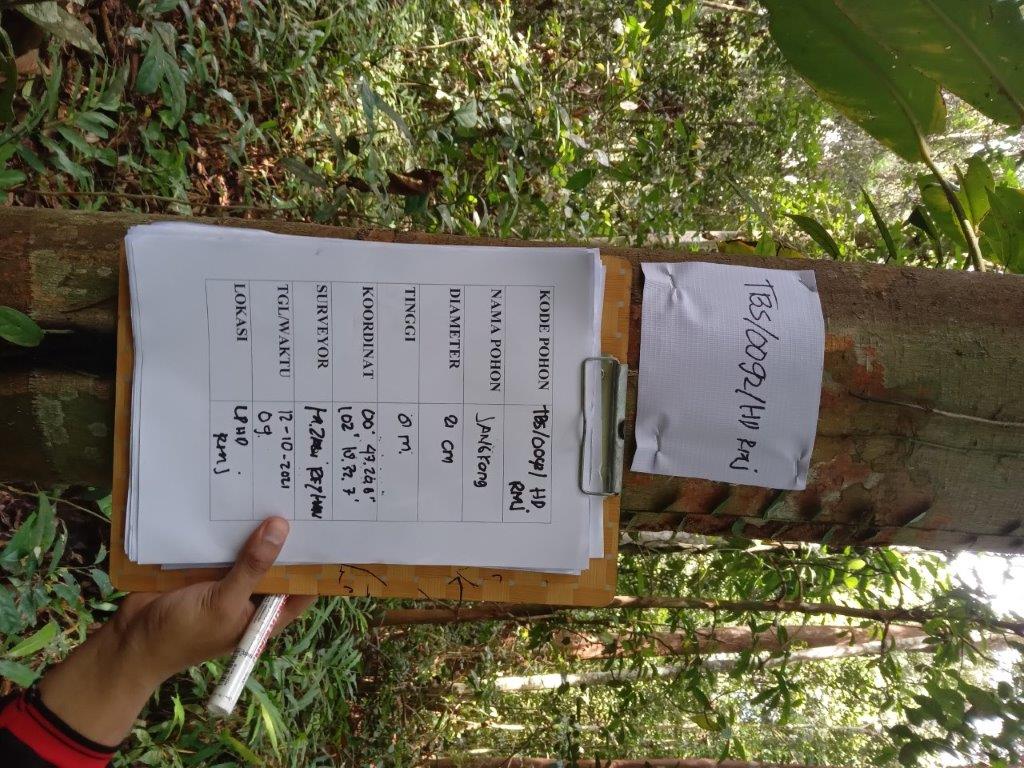 TBS/0092/HD RMJ
KODE POHON TBS/0092/ HD
RMJ
NAMA POHON JANGKONG
DIAMETER cm
TINGGI m.
KOORDINAT 00° 47.
102°
SURVEYOR
TGL/WAKTU 12-10-2021
09.
LOKASI LPHD
RMJ